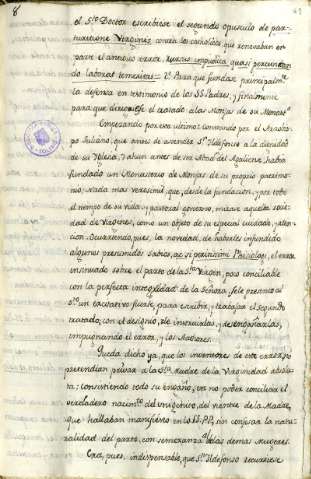 8
el S.to Doctor escribiese el segundo opusculo de par-
turicione Virginis contra los catholicos que renovaban en
parte el antiguo error.
do laborat temeritas: V. Para que fundase principalm.te
la defensa en testimonio de los SS. Padres, y finalmente
para que dirigiese el tratado a las Monjas de su Monast.o
Empezando por esto ultimo: consta por el Arzobis-
po Juliano, que antes de ascender S.n Ildefonso a la dignidad
de su Iglesia, y ahun antes de ser Abad del Agaliense, habia
fundado un Monasterio de Monjas de su propio patrimo-
nio. Nada mas verosimil que, desde la fundacion, y por todo
el tiempo de su vida, y pastoral govierno, mirase aquella socie-
dad de Virgines, como un objeto de su especial cuidado, y aten-
cion. Ocurriendo, pues, la novedad, de haberles infundido
algunos presumidos sabios, ac si peritissimi Phisiologi, el error
insinuado sobre el parto de la S.ma Virgen, poco conciliable
con la perfecta integridad de la Señora, se le presentó al
S.to un excitativo fuerte, para escribir, y trabajar el segundo
tratado, con el designio, de instruirlas, y desengañarlas,
impugnando el error, y los Authores.
Queda dicho ya, que los inventores de este error, pre-
tendian privar a la S.ta Madre de la Virginidad absolu-
ta; consistiendo todo su engaño, en no poder conciliar el
verdadero nacim.to del Unigenito, del vientre de la Madre,
que hallaban manifiesto en los SS. PP., sin confesar la natu-
ralidad del parto, con semejanza al de las demas Mugeres.
Era, pues, indispensable, que S.n Ildefonso recurriese